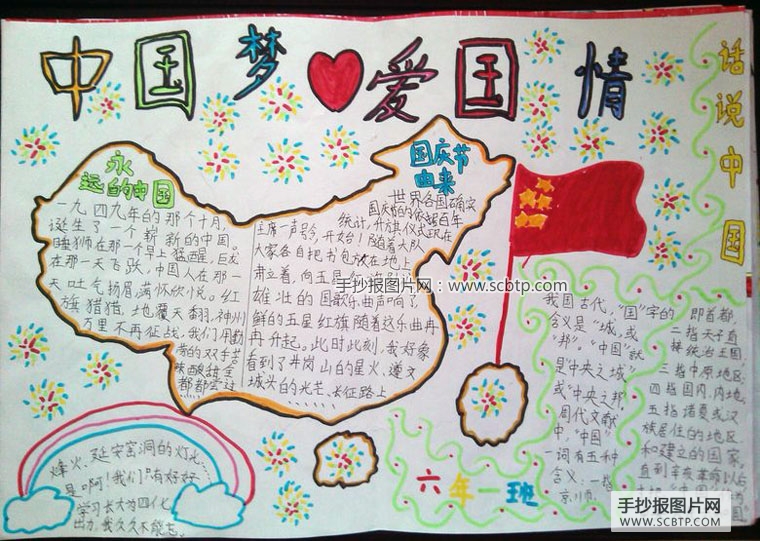 中国梦爱国情
话说中国
永
远的中国
一九四九年的那个十月,
诞生了一个崭新的中国。
睡狮在那一个早上猛醒,巨龙
在那一天飞跃,中国人在那一
天吐气扬眉,满怀欣悦。红
旗猎猎,地覆天翻,神州
万里不再征战,我们用勤
劳的双手
酸甜
都都尝过
国庆节
由来
世界各国确实
国庆
统计,升旗仪式
主席一声号令,开始台!随着大队
大家各自把书包放在地上
肃立着,向五星
雄壮的国歌乐曲声响了
鲜的五星红旗随着这乐曲冉
冉升起。此时此刻,我好象
看到了井岗山的星火,遵义
城头的光芒,长征路上
……
烽火,延安窑洞的灯火
是啊!我们有好好
学习长大为四化
出力,我久久不能忘。
六年一班
我国古代,“国”字的
含义是“城,或
“邦”。“中国”就
是“中央之城”
或“中央之邦”
周代文献
中,“中国”
一词有五种
含义:一指
京师,
即首都,
二指天子直
接统治王国,
三指中原地区,
四指国内、内地,
五指诸夏或汉
族居住的地区
和建立的国家,
直到辛亥革命以后
手抄报图片网:www.scbtp.com
手抄报图片网
WWW.SCBTP.COM